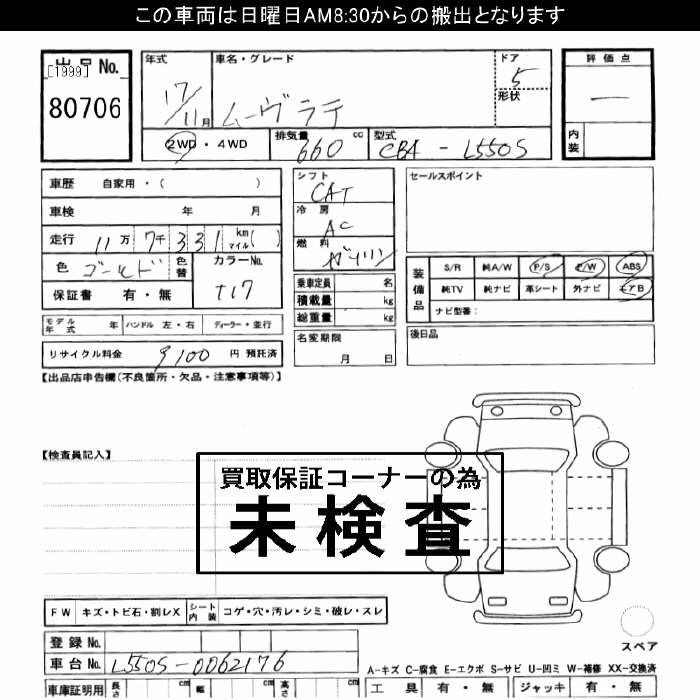 この車両は日曜日AM8:30からの搬出となります
出品 No.
[1999]
80706
年式
17/11月
車名・グレード
ムーヴラテ
ドア
5
形状
評価点
―
内装
2WD・4WD
排気量
660 cc
型式
CBA - L550S
車歴 自家用・( )
車検 年 月
走行 11万 7千 331 km マイル( )
色 ゴールド 色替
カラーNo.
T17
保証書 有・無
シフト
CAT
冷房
AC
燃料
ガソリン
乗車定員 名
積載量 kg
総重量 kg
名変期限
月 日
セールスポイント
装備品
S/R 純A/W P/S P/W ABS
純TV 純ナビ 革シート 外ナビ エアB
ナビ型番:
後日品
モデル年式 年 ハンドル 左・右 ディーラー・並行
リサイクル料金 9100 円 預託済
【出品店申告欄(不良箇所・欠品・注意事項等)】
【検査員記入】
買取保証コーナーの為
未検査
FW キズ・トビ石・割レX シート内装 コゲ・穴・汚レ・シミ・破レ・スレ
登録 No.
車台 No. L550S-0062176
スペア
A-キズ C-腐食 E-エクボ S-サビ U-凹ミ W-補修 XX-交換済
車庫証明用 長さ cm 幅 cm 高さ cm
工具 有・無 ジャッキ 有・無